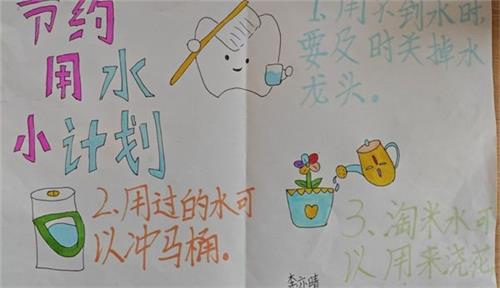 节约
用水
小计划
1、用不到水时,
要及时关掉水
龙头。
2、用过的水可
以冲马桶。
3、淘米水可
以用来浇花
李亦晴